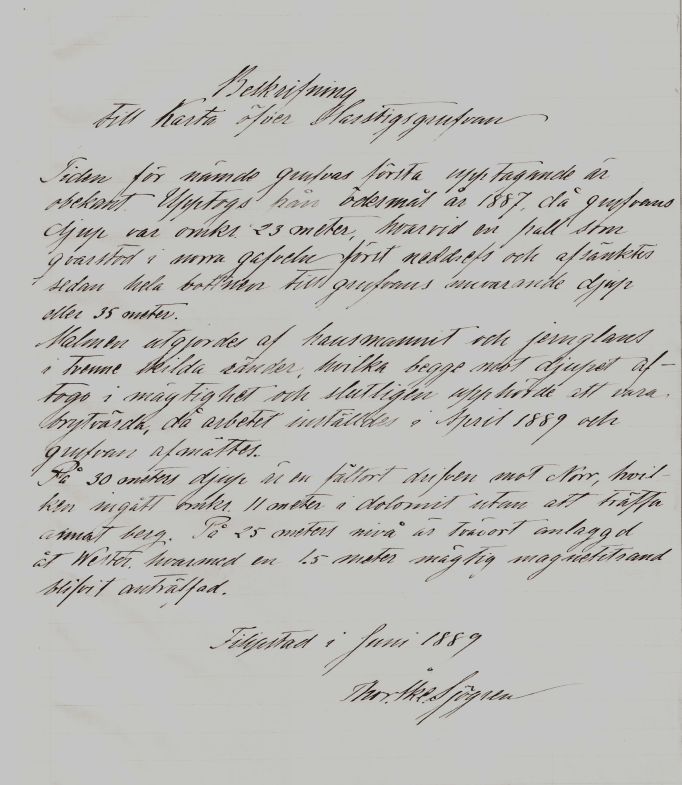 Beskrifning
till Karta öfver Harstigsgrufvan
Tiden för nämde grufvas första upptagande är
obekant. Upptogs från ödesmål år 1887, då grufvans
djup var omkr. 23 meter, hvarvid en pall som
qvarstod i norra gafveln först neddrefs och afsänktes
sedan hela bottnen till grufvans nuvarande djup
eller 35 meter.
Malmen utgjordes af hausmannit och jernglans
i tvenne skilda ränder, hvilka begge mot djupet af-
togo i mägtighet och slutligen upphörde att vara
brytvärda, då arbetet instäldes i April 1889 och
grufvan afmättes.
På 30 meters djup är en fältort drifven mot Norr, hvil-
ken ingått omkr. 11 meter i dolomit utan att träffa
annat berg. På 25 meters nivå är tvärort anlaggd
åt Wester, hvarmed en 1.5 meter mägtig magnetitrand
blifvit anträffad.
Filipstad i Juni 1889
Thor. Åke Sjögren